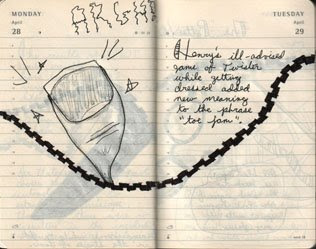 MONDAY
April
28
ARGH
TUESDAY
April
29
Henry's ill-advised
game of Twister
while getting
dressed added
new meaning
to the phrase
"toe jam".